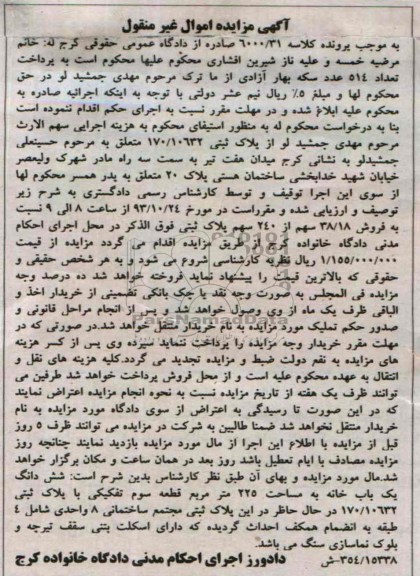 آگهی مزایده اموال غیر منقول
به موجب پرونده کلاسه ۶۰۰۰/۳۱ صادره از دادگاه عمومی حقوقی کرج له: خانم
مرضیه خمسه و علیه ناز شیرین افشاری محکوم علیها محکوم است به پرداخت
تعداد ۵۱۴ عدد سکه بهار آزادی از ما ترک مرحوم مهدی جمشید لو در حق
محکوم لها و مبلغ ۵٪ ریال نیم عشر دولتی با توجه به اینکه اجرائیه صادره به
محکوم علیه ابلاغ شده و در مهلت مقرر نسبت به اجرای حکم اقدام ننموده است
بنا به درخواست محکوم له به منظور استیفای محکوم به هزینه اجرایی سهم الارث
مرحوم مهدی جمشید لو از پلاک ثبتی ۱۷۰/۱۰۶۳۲ متعلق به مرحوم حسینعلی
جمشیدلو به نشانی کرج میدان هفت تیر به سمت سه راه مادر شهرک ولیعصر
خیابان شهید خدابخشی ساختمان هستی پلاک ۲۰ متعلق به پدر همسر محکوم لها
از سوی این اجرا توقیف و توسط کارشناس رسمی دادگستری به شرح زیر
توصیف و ارزیابی شده و مقرراست در مورخ ۹۳/۱۰/۲۴ از ساعت ۸ الی ۹ نسبت
به فروش ۳۸/۱۸ سهم از ۲۴۰ سهم پلاک ثبتی فوق الذکر در محل اجرای احکام
مدنی دادگاه خانواده کرج از طریق مزایده اقدام می گردد مزایده از قیمت
۱/۱۵۵/۰۰۰/۰۰۰ ریال نظریه کارشناسی شروع می شود و به هر شخص حقیقی و
حقوقی که بالاترین قیمت را پیشنهاد نماید فروخته خواهد شد ده درصد وجه
مزایده فی المجلس به صورت وجه نقد یا چک بانکی تضمینی از خریدار اخذ و
الباقی ظرف یک ماه از وی وصول خواهد شد و پس از انجام مراحل قانونی و
صدور حکم تملیک مورد مزایده به نام خریدار انتقال خواهد شد.در صورتی که در
مهلت مقرر خریدار وجه مزایده را پرداخت ننماید سپرده وی پس از کسر هزینه
های مزایده به نفع دولت ضبط و مزایده تجدید می گردد.کلیه هزینه های نقل و
انتقال به عهده محکوم علیه است و از محل فروش پرداخت خواهد شد طرفین می
توانند ظرف یک هفته از تاریخ مزایده نسبت به نحوه انجام مزایده اعتراض نمایند
که در این صورت تا رسیدگی به اعتراض از سوی دادگاه مورد مزایده به نام
خریدار منتقل نخواهد شد ضمنا طالبین به شرکت در مزایده می توانند ظرف ۵ روز
قبل از مزایده با اطلاع این اجرا از مال مورد مزایده بازدید نمایند چنانچه روز
مزایده مصادف با ایام تعطیل باشد روز بعد در همان ساعت و مکان برگزار خواهد
شد.مال مورد مزایده و بهای آن طبق نظر کارشناس بدین شرح است: شش دانگ
یک باب خانه به مساحت ۲۲۵ متر مربع قطعه سوم تفکیکی با پلاک ثبتی
۱۷۰/۱۰۶۳۲ در حال حاظر در این پلاک ثبتی مجتمع ساختمانی ۸ واحدی شامل ۴
طبقه به انضمام همکف احداث گردیده که دارای اسکلت بتنی سقف تیرچه و
بلوک نماسازی سنگ می باشد.
۳۵۴/۱۵۳۳۸-ش دادورز اجرای احکام مدنی دادگاه خانواده کرج